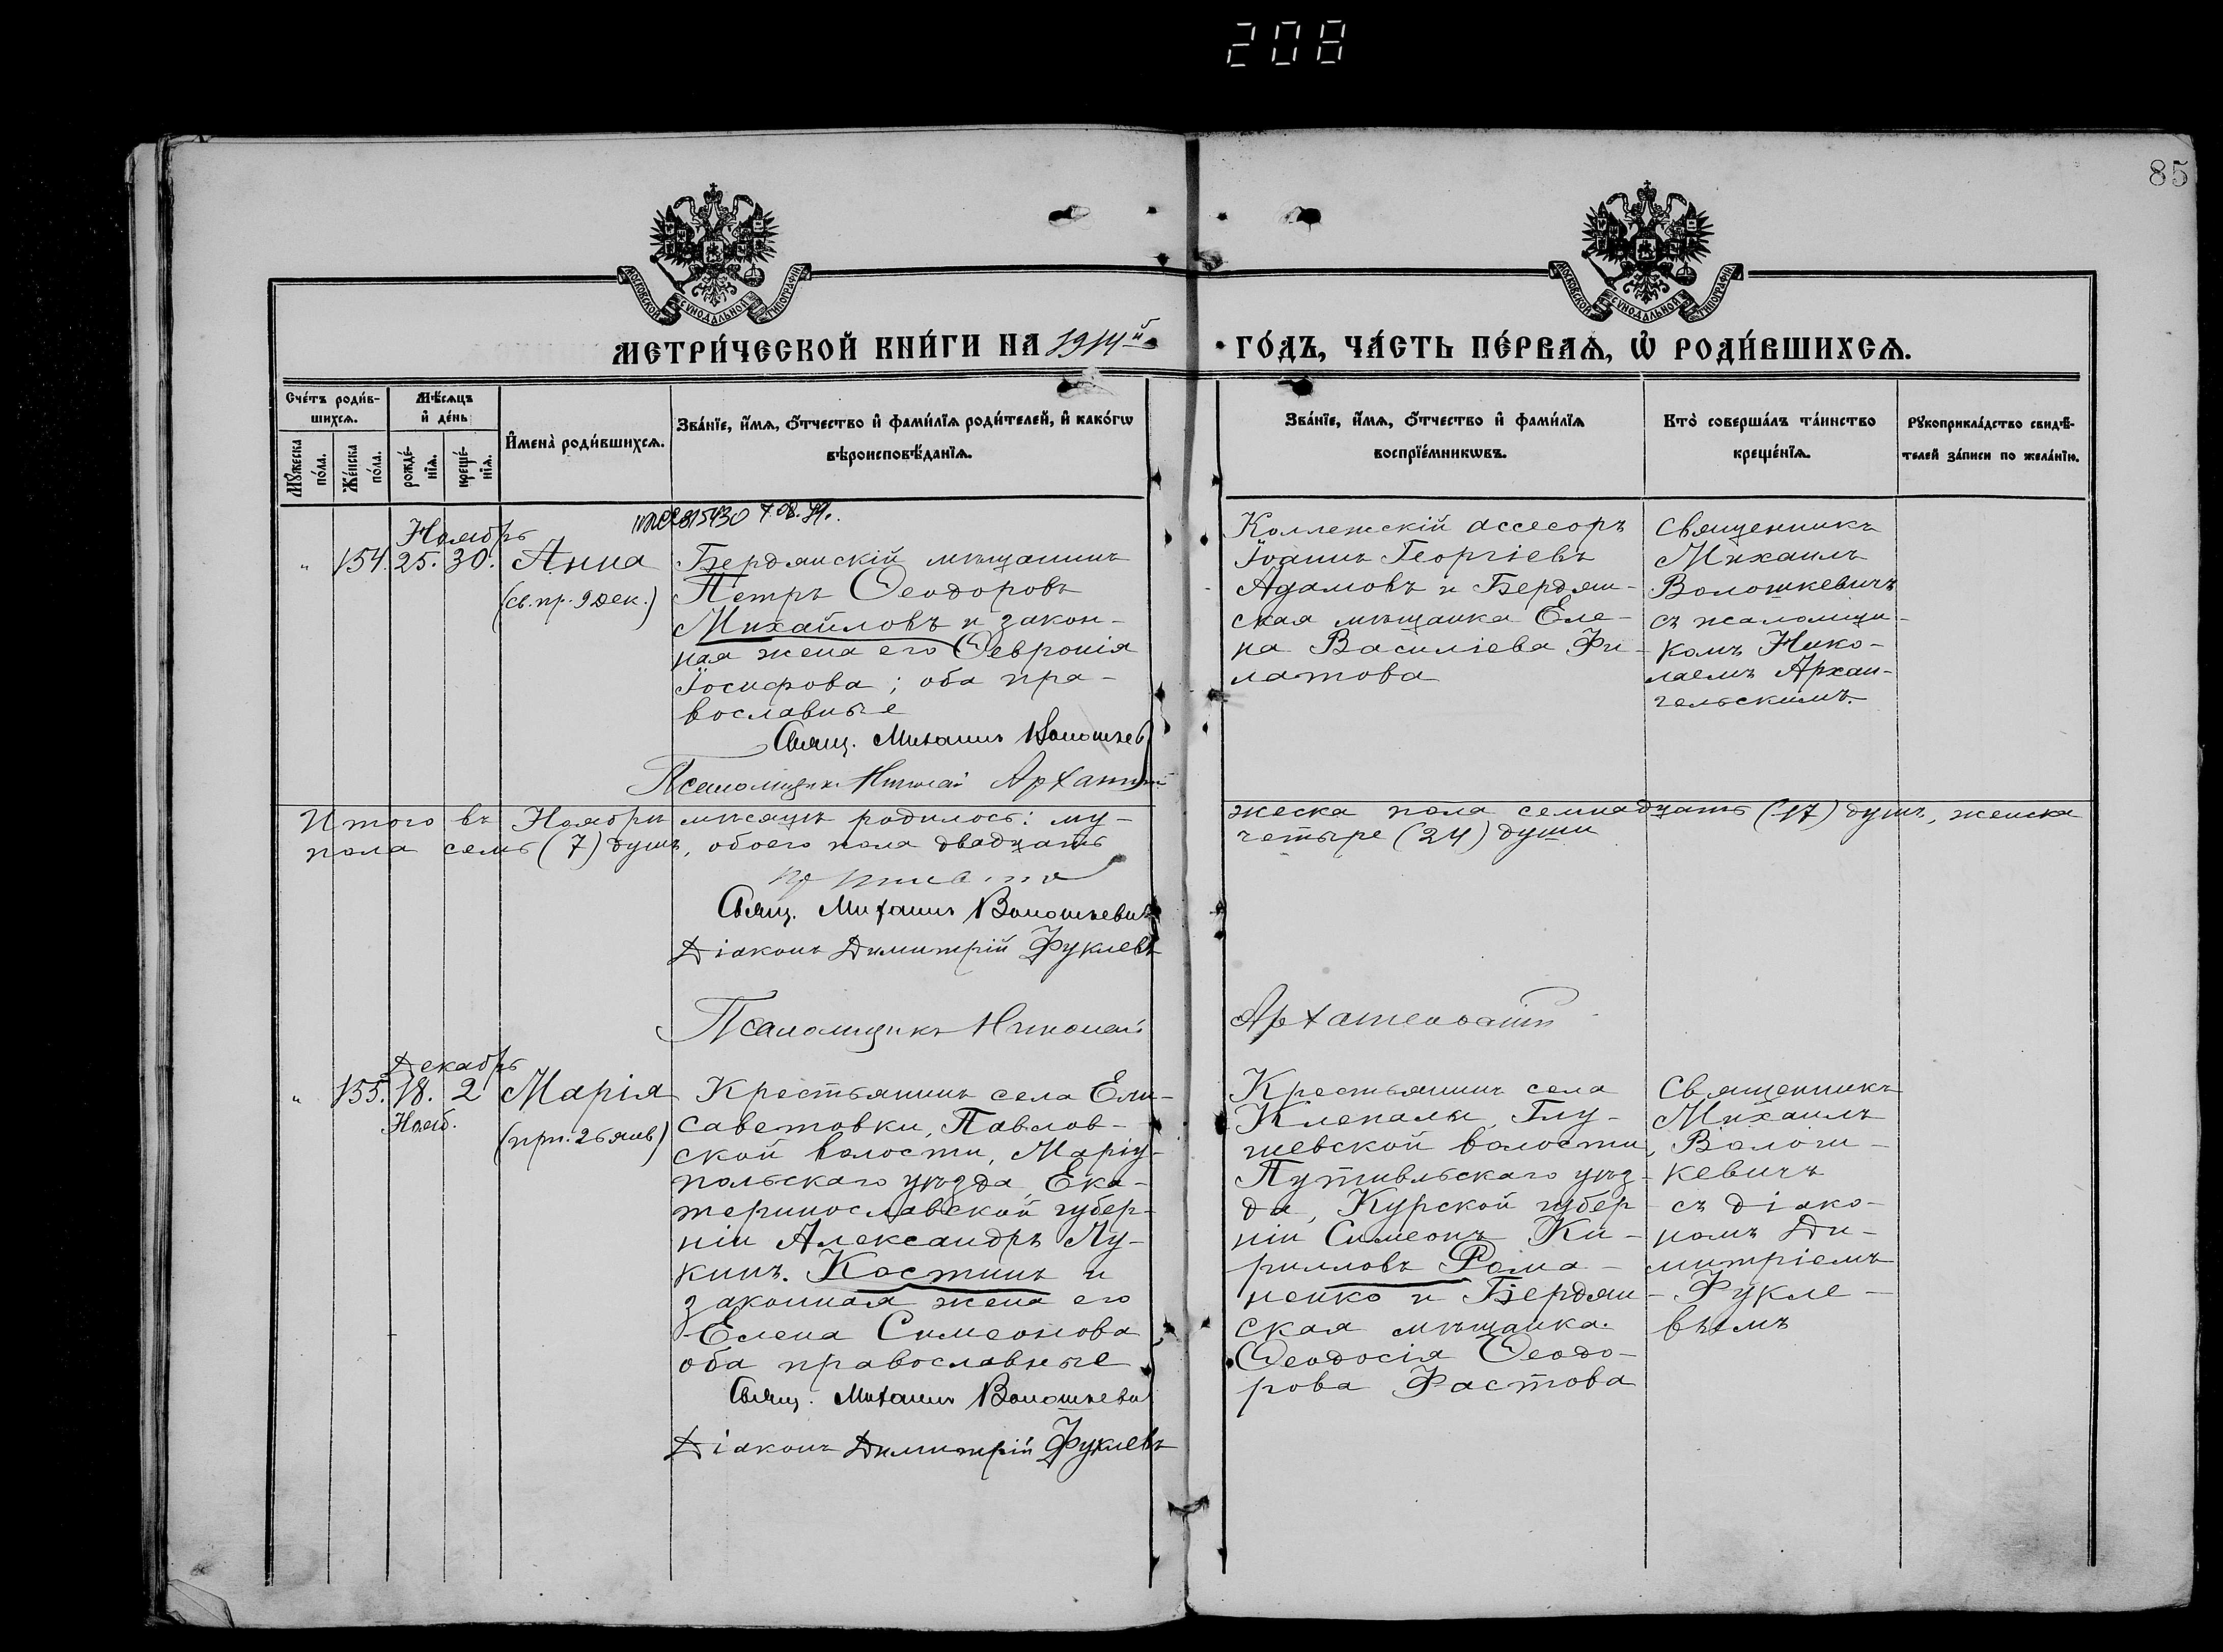 208
85
МОСКОВСКОЙ СѴНОДАЛЬНОЙ ТИПОГРАФІИ
МОСКОВСКОЙ СѴНОДАЛЬНОЙ ТИПОГРАФІИ
МЕТРИ́ЧЕСКОЙ КНИ́ГИ НА 1914й
ГО́ДЪ, ЧА́СТЬ ПЕ́РВАѦ, Ѡ҆ РОДИ́ВШИХСѦ.
Сче́тъ роди́в-
шихсѧ.
Мѣ́сѧцъ
и҆ де́нь
Мꙋ́жеска по́ла.
Же́нска по́ла.
рожде́-
нїѧ.
креще́-
нїѧ.
И҆мена̀ роди́вшихсѧ.
Зва́нїе, и҆́мѧ, ѻ҆́тчество и҆ фами́лїѧ роди́телей, и҆ како́гѡ
вѣроисповѣ́данїѧ.
Зва́нїе, и҆́мѧ, ѻ҆́тчество и҆ фами́лїѧ
воспрїе́мникѡвъ.
Кто̀ соверша́лъ та́инство
креще́нїѧ.
Рꙋкоприкла́дство свидѣ́-
телей за́писи по жела́нїю.
Ноябрь
" 154. 25. 30. Анна
(св. пр. 9 дек.)
Бердянскій мѣщанинъ
Петръ Ѳеодоровъ
Михайловъ и закон-
ная жена его Ѳевронія
Іосифова; оба пра-
вославные
Свящ. Михаилъ Волошкев
Псаломщикъ Николай
Коллежскій ассесоръ
Іоаннъ Георгіевъ
Адамовъ и Бердян-
ская мѣщанка Еле-
на Василіева Фи-
латова
Священникъ
Михаилъ
Волошкевичъ
съ псаломщи-
комъ Нико-
лаемъ Архан-
гельскимъ.
Итого въ Ноябрѣ мѣсяцѣ родилось: му-
жеска пола семнадцать (17) душъ, женска
пола семь (7) душъ, обоего пола двадцать
четыре (24) души
Свящ. Михаилъ Волошкевичъ
Діаконъ Димитрій Фуклевъ
Псаломщикъ Николай
Декабрь
" 155. 18. 2 Марія
Нояб.
(прп. 26 янв)
Крестьянинъ села Ели-
саветовки, Павлов-
ской волости, Маріу-
польскаго уѣзда, Ека-
теринославской губер-
ніи Александръ Лу-
кинъ. Костинъ и
законная жена его
Елена Симеонова
оба православные
Свящ. Михаилъ Волошкевич
Діаконъ Димитрій Фуклевъ
Крестьянинъ села
Клепалы, Глу-
шевской волости,
Путивльскаго уѣз-
да, Курской губер-
ніи Симеонъ Ки-
рилловъ Рома-
ненко и Бердян-
ская мѣщанка.
Ѳеодосія Ѳеодо-
рова Фастова
Священникъ
Михаилъ
Волош-
кевичъ
съ діако-
номъ Ди-
митріемъ
Фукле-
вымъ